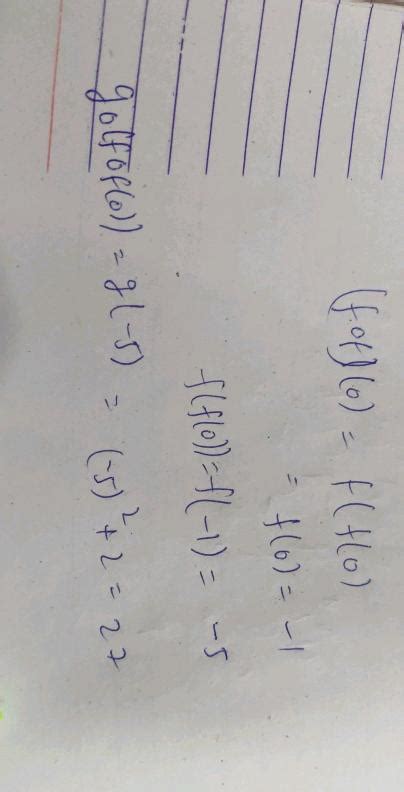 (fof)(0) = f(f(0)
= f(0) = -1
f(f(0)) = f(-1) = -5
go(fof(0)) = g(-5) = (-5)² + 2 = 27